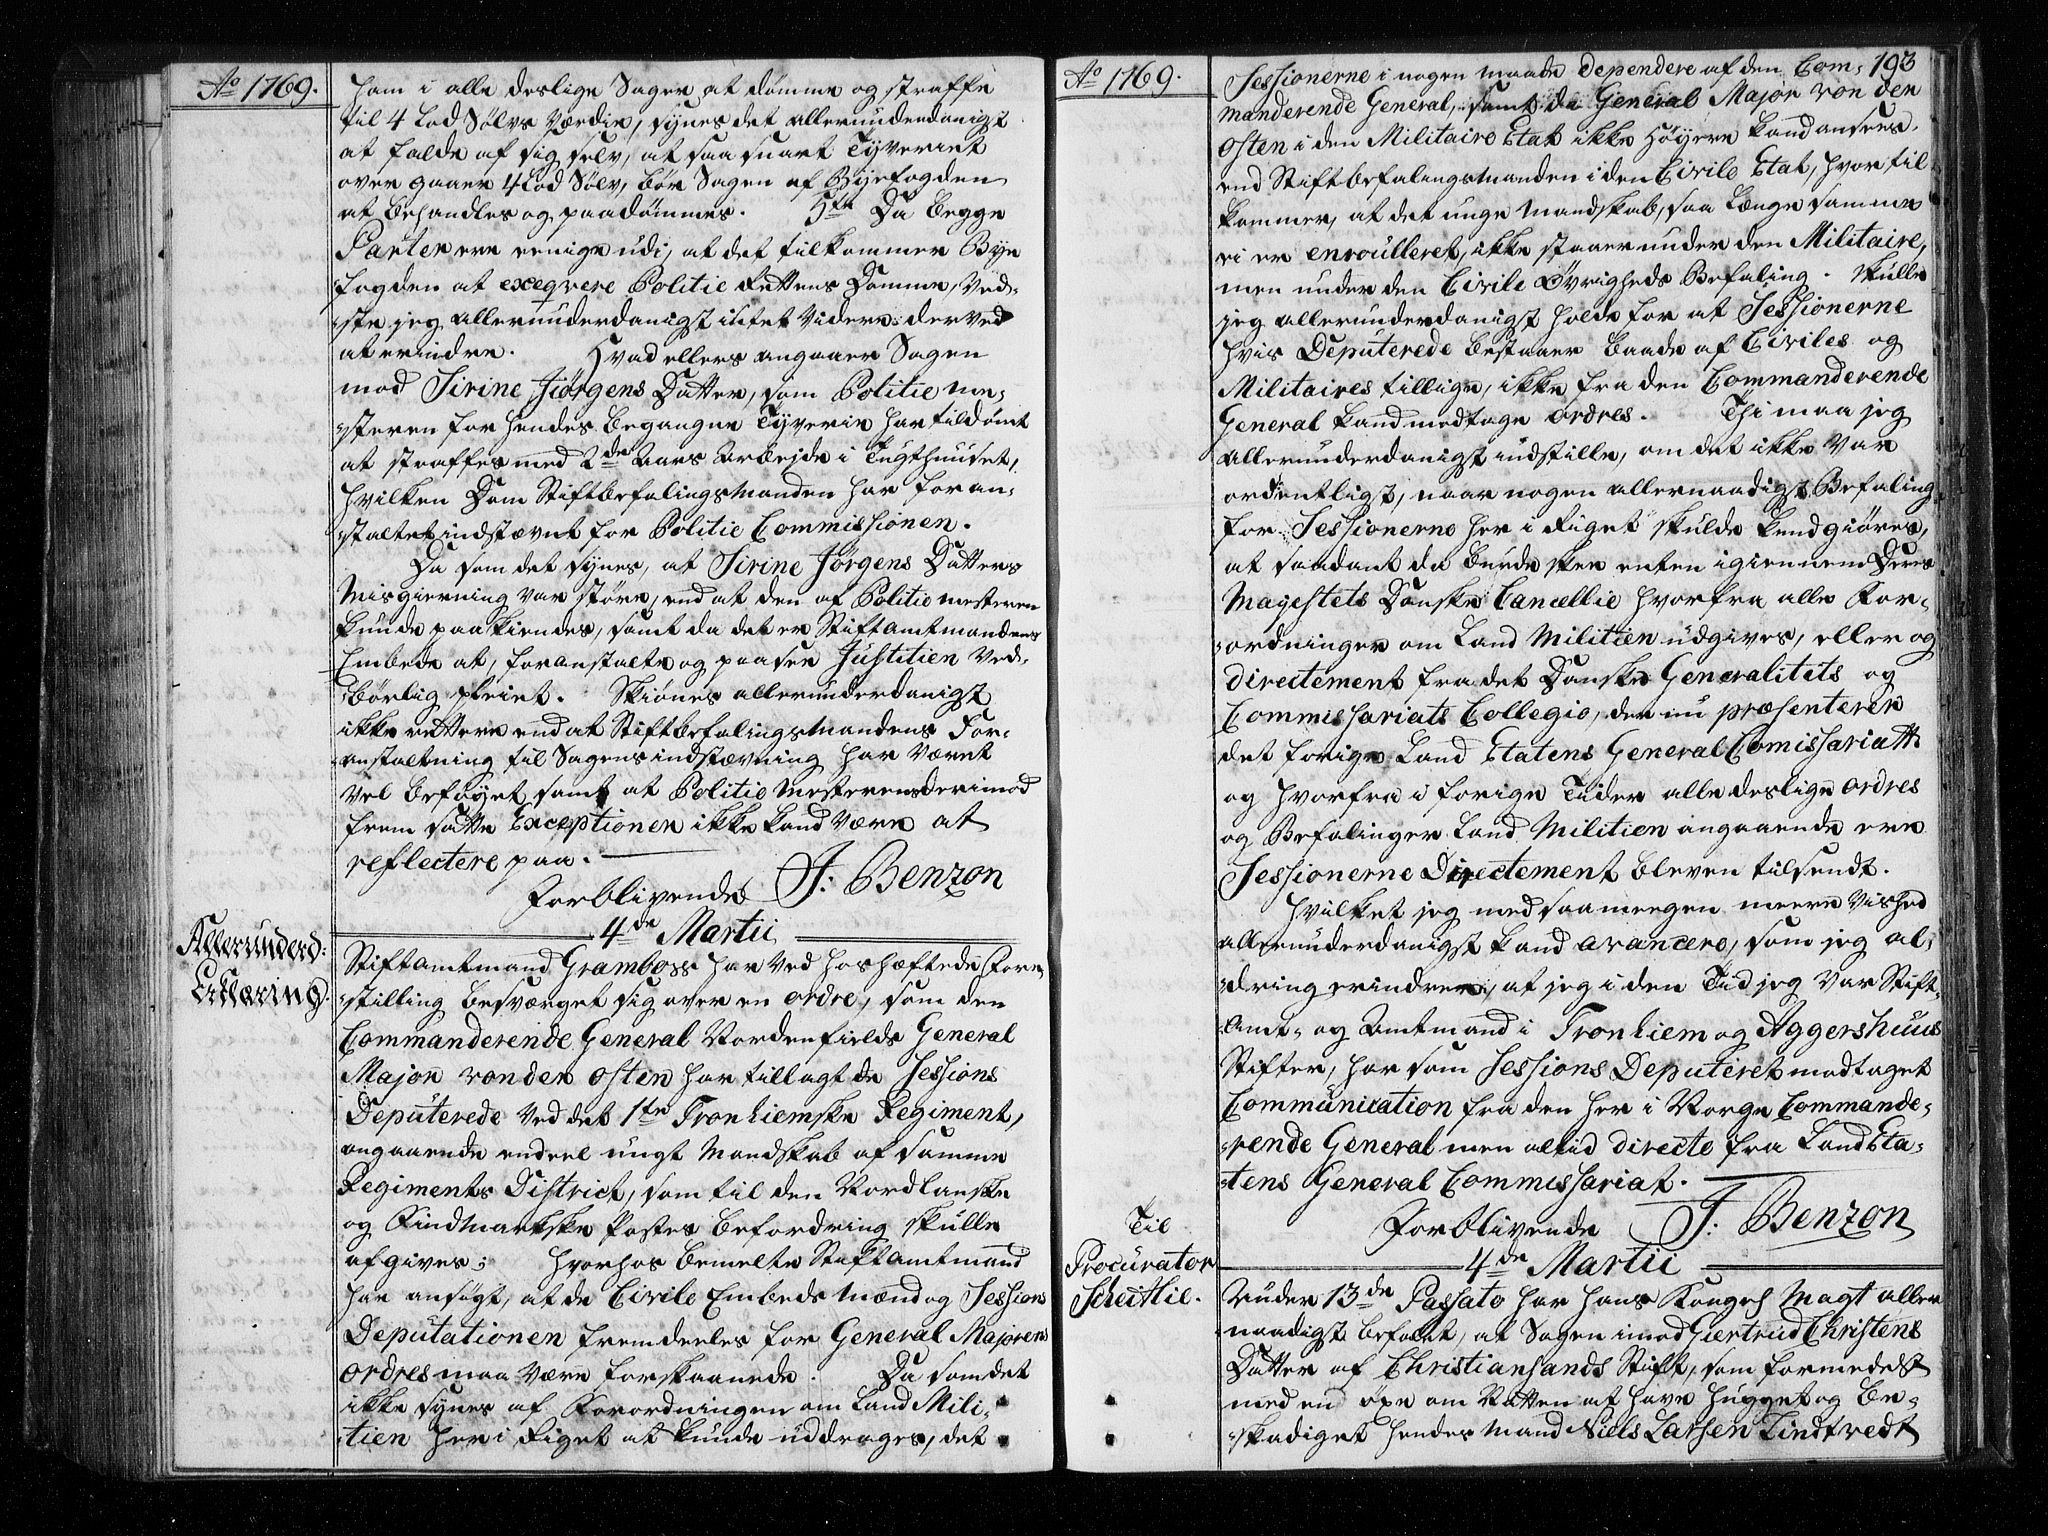 Ao 1769.
ham i alle deslige Sager at dømme og straffe
til 4 Lod Sølvs Værdie, synes det allerunderdanigst
at falde af sig selv, at saa snart Tyveriet
over gaaer 4 Lod Sølv, bør Sagen af Byefogden
at behandles og paadømmes. 5te Da begge
Parter ere eenige udi, at det tilkommer Bye
fogden at exeqvere Politie Rettens Domme, Ved-
ste jeg allerunderdanigst intet videre derved
at erindre. Hvad ellers angaaer Sagen
mod Sirine Jørgens Datter, som Politie me-
steren for hendes begangne Tyverie har tildømt
at straffes med 2de Aars Arbejde i Tugthuuset,
hvilken Dom Stiftbefalingsmanden har foran-
staltet indstævnt for Politie Commissionen.
Da som det synes, at Sirine Jørgens Datters
Misgierning var større, end at den af Politiemesteren
kunde paakiendes, samt da det er Stiftamtmandens
Embede at, foranstalte og paasee Justitien ved-
børlig pleiet. Skiønnes allerunderdanigst
ikke rettere end at Stiftbefalingsmandens For-
anstaltning til Sagens indstævning har været
vel beføyet, samt at Politie Mesterens derimod
frem satte Exceptionen ikke kand være at
reflectere paa.
Forblivende J: Benzon
4de Martii
Allerunderd:
Erklæring.
Stiftamtmand Gramboss har ved hoshæftede Fore-
stilling besværget sig over en ordre, som den
Commanderende General Nordenfields General
Major von der Osten har tillagt de Sessions
Deputerede ved det 1te Tronhiemske Regiment,
angaaende endeel ungt Mandskab af samme
Regiments District, som til den Nordlanske
og Findmarkske Postes befordring skulle
afgives; hvorhos bemelte Stiftamtmand
har ansøgt, at de Civile Embeds Mænd og Sessions
Deputationen fremdeeles for General Majorens
ordres maa være forskaanede. Da som det
ikke synes af Forordningen om Land Mili-
tien her i Riget at kunde uddrages, det
Ao 1769.
193
Sessionerne i nogen maade dependere af den Com-
manderende General, samt da General Major von der
Osten i den Militaire Etat ikke høyere kand ansees,
end Stiftbefalingsmanden i den Civile Etat, hvortil
kommer, at det unge mandskab, saa længe samme
ei er enroulleret, ikke staaer under den Militaire,
men under den Civile Øvrigheds Befaling. Skulle
jeg allerunderdanigst holde for at Sessionerne
hvis Deputerede bestaaer baade af Civiles og
Militaires tillige, ikke fra den Commanderende
General kand modtage ordres. Thi maa jeg
allerunderdanigst indstille, om det ikke var
ordentligst, naar nogen allernaadigst Befaling
for Sessionerne her i Riget skulde kundgiøres,
at saadant da burde skee enten igiennem Deres
Mayestets Danske Cancellie hvorfra alle For-
ordninger om Land Militien udgives, eller og
directement fra det Danske Generalitets og
Commissariats Collegio, der nu præsenterer
det forige Land Etatens General Comissariatt
og hvorfra i forige Tiider alle deslige ordres
og Befalinger Land Militien angaaende ere
Sessionerne Directement bleven tilsendt.
Hvilket jeg med saa meegen meere Vished
allerunderdanigst kand avancere, som jeg al-
dring erindrer, at jeg i den Tid jeg var Stift-
Amt- og Amtmand i Tronhiem og Aggershuus
Stifter, har som Sessions Deputeret modtaget
Communication fra den her i Norge Commande-
rende General men altid directe fra Land Eta-
tens General Commissariat.
Forblivende J: Benzon
4de Martii
Til
Procurator
Scheitlie.
Under 13de Passato har hans Konges Magt aller
naadigst befalet, at Sagen imod Giertrud Christens
Datter af Christiansands Stift, som formedelst
med en øxe om Natten at have hugget og be-
skadiget hendes Mand Niels Larsen Lindtvedt